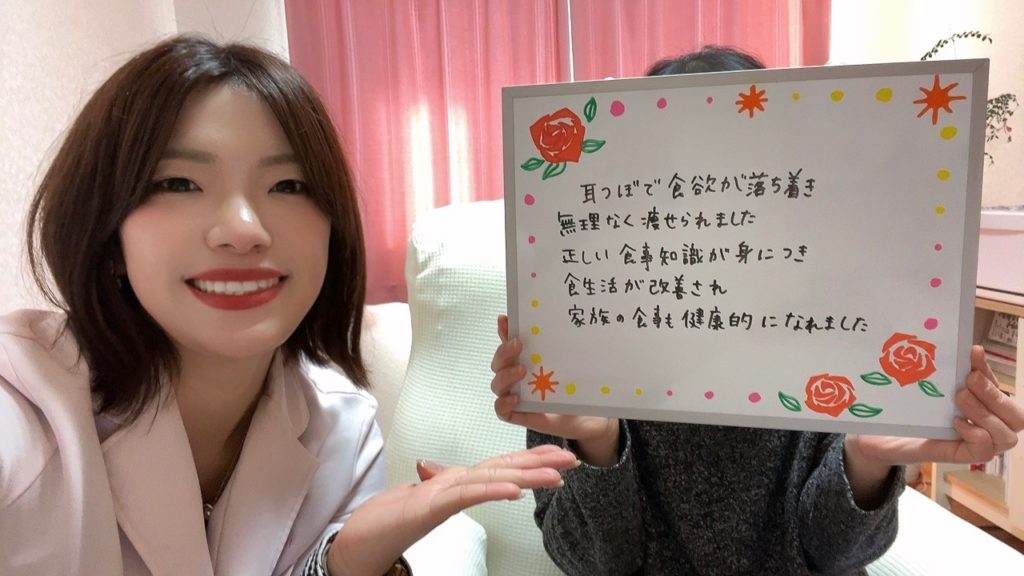 耳つぼで食欲が落ち着き
無理なく痩せられました
正しい食事知識が身につき
食生活が改善され
家族の食事も健康的になれました